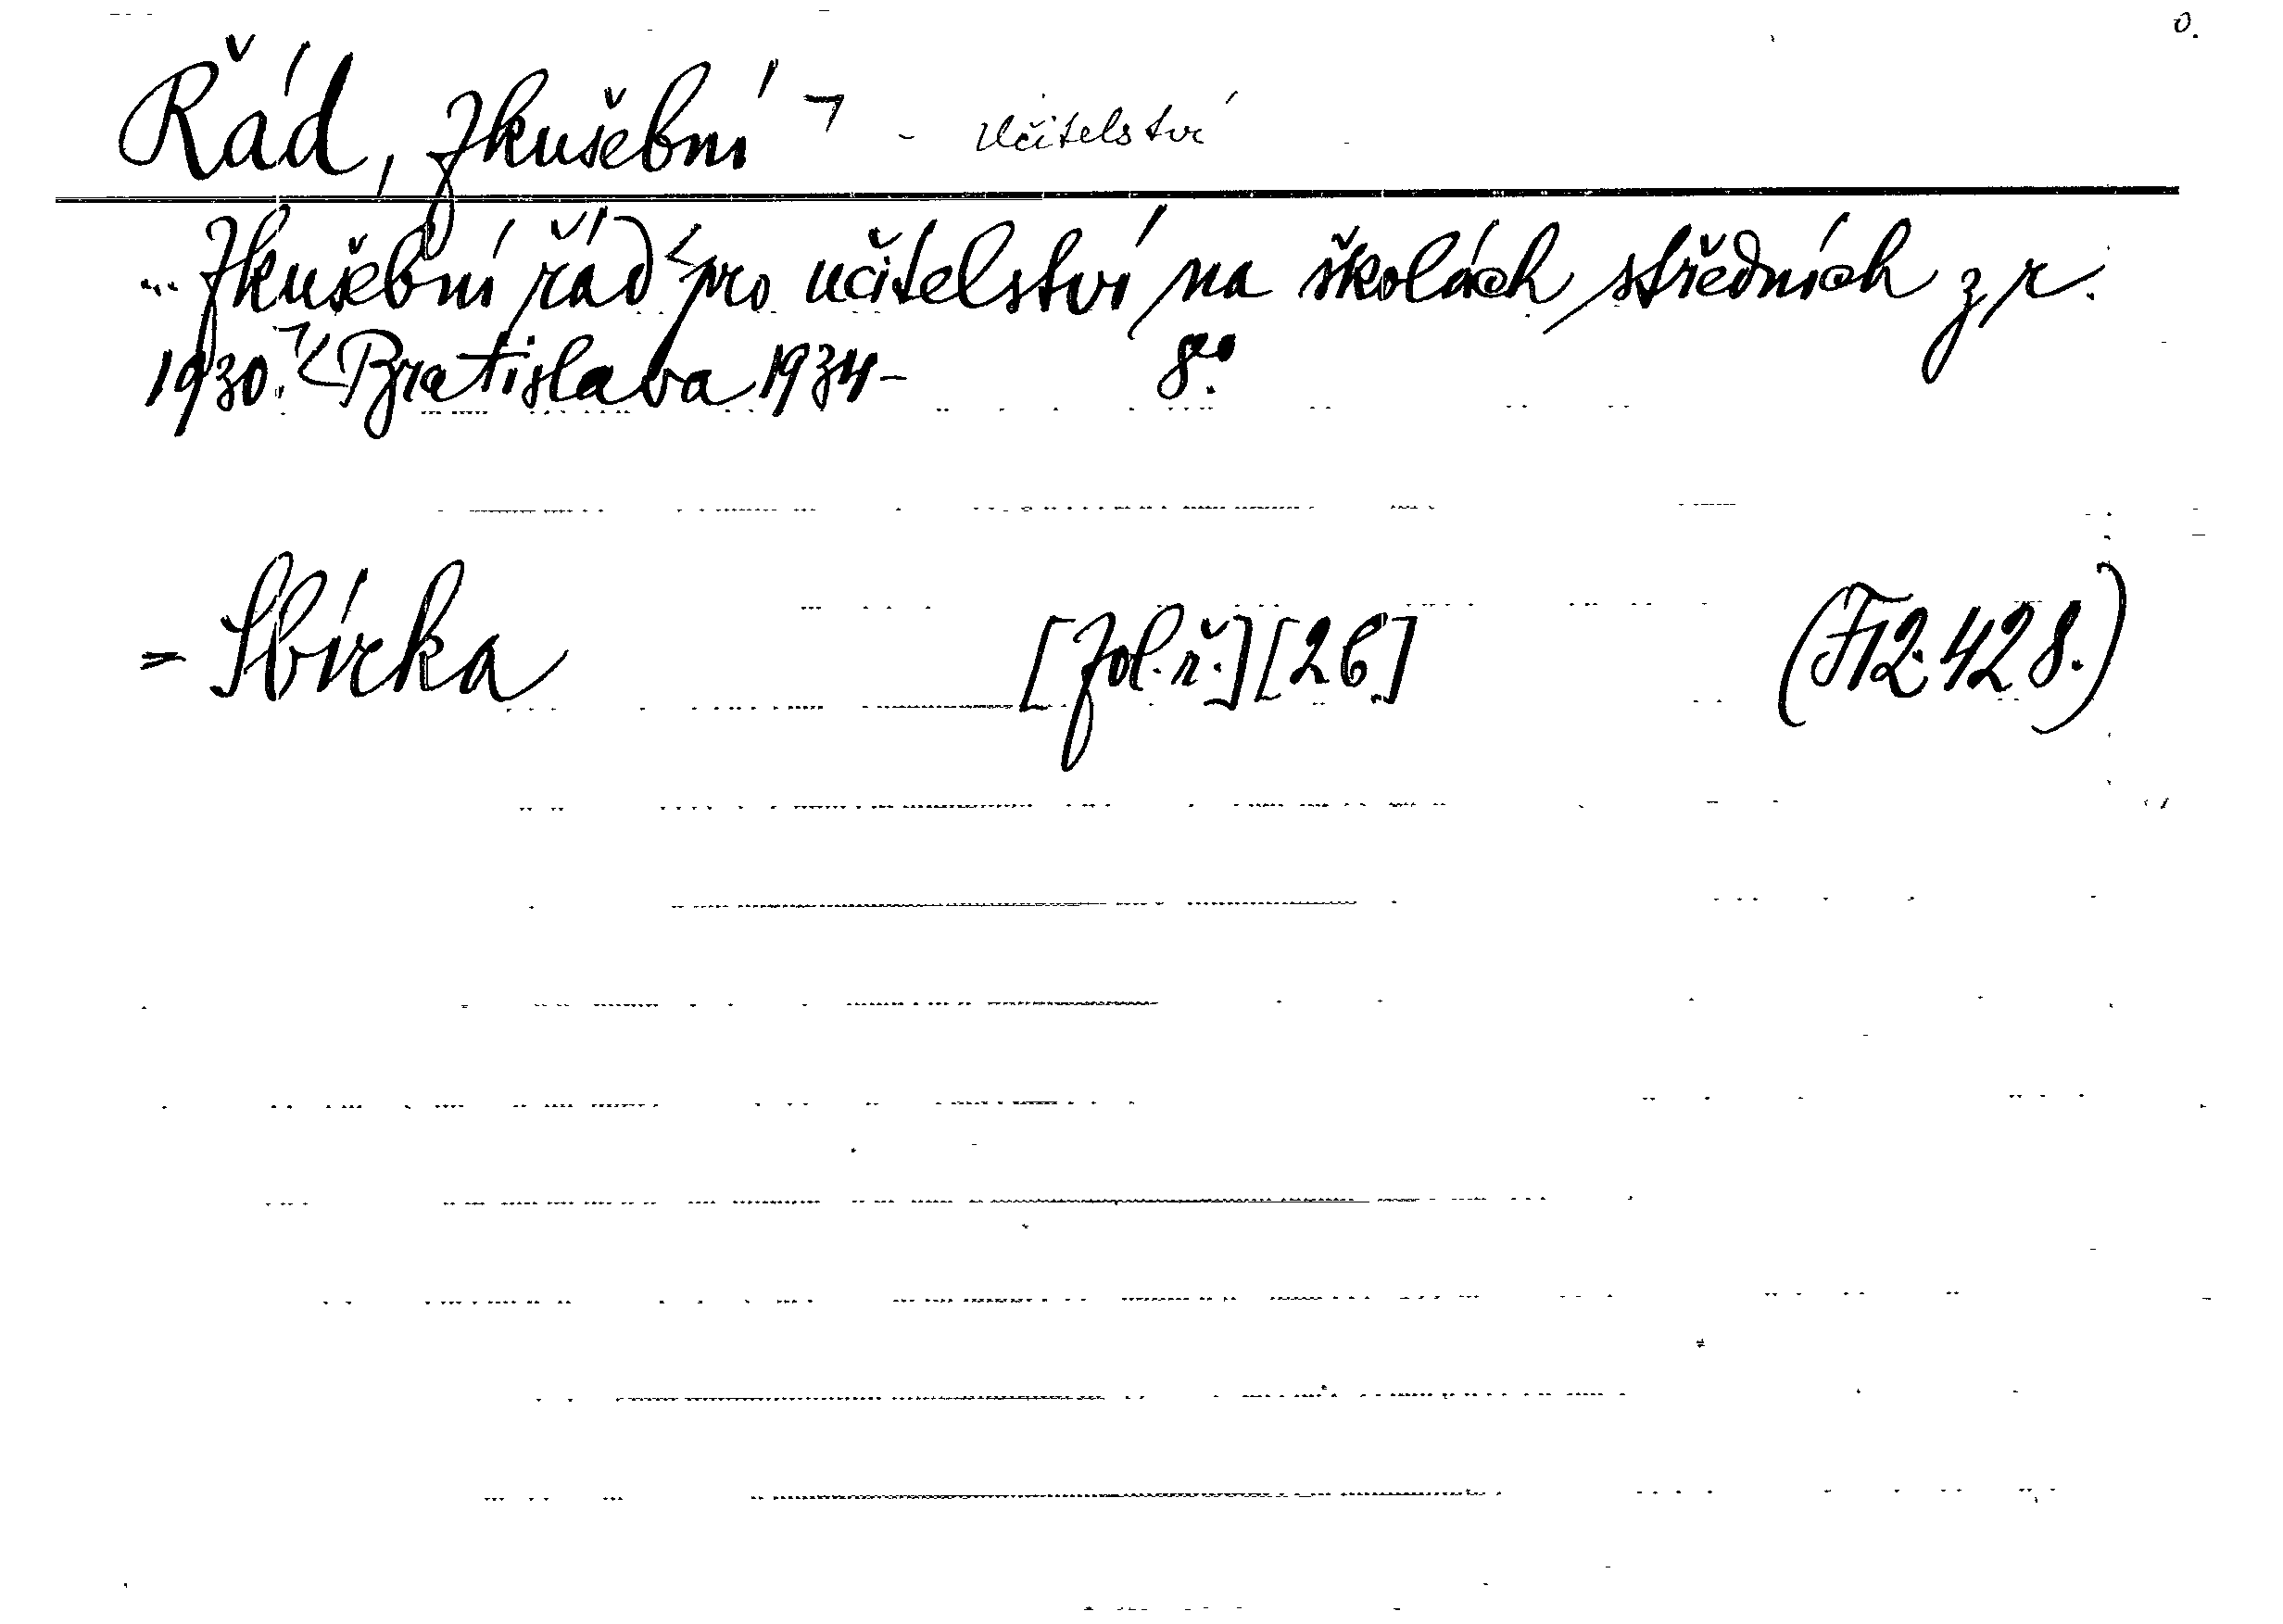 o.
Řád, Zkušební ¬ - Učitelství
... Zkušební řád < pro učitelství na školách středních z r.
1930. ¬ < Bratislava 1934- 8°.
= Sbírka [zol. ř.] [26] (F12.428.)